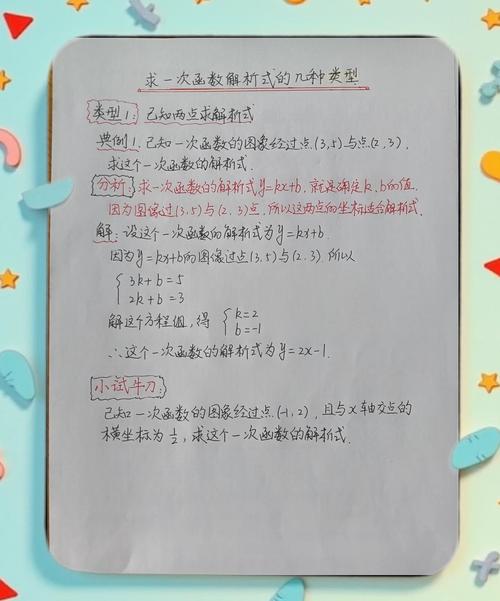 求一次函数解析式的几种类型
类型1: 已知两点求解析式
典例1. 已知一次函数的图象经过点(3,5)与点(2,3),
求这个一次函数的解析式.
分析: 求一次函数的解析式y=kx+b, 就是确定k、b的值.
因为图像过(3,5)与(2,3)点, 所以这两点的坐标适合解析式.
解: 设这个一次函数的解析式为y=kx+b.
因为y=kx+b的图像过点(3,5)与(2,3). 所以
3k+b=5
2k+b=3
解这个方程组, 得 k=2
b=-1
∴这个一次函数的解析式为y=2x-1.
小试牛刀
已知一次函数的图象经过点(-1,2), 且与x轴交点的
横坐标为1/2, 求这个一次函数的解析式.